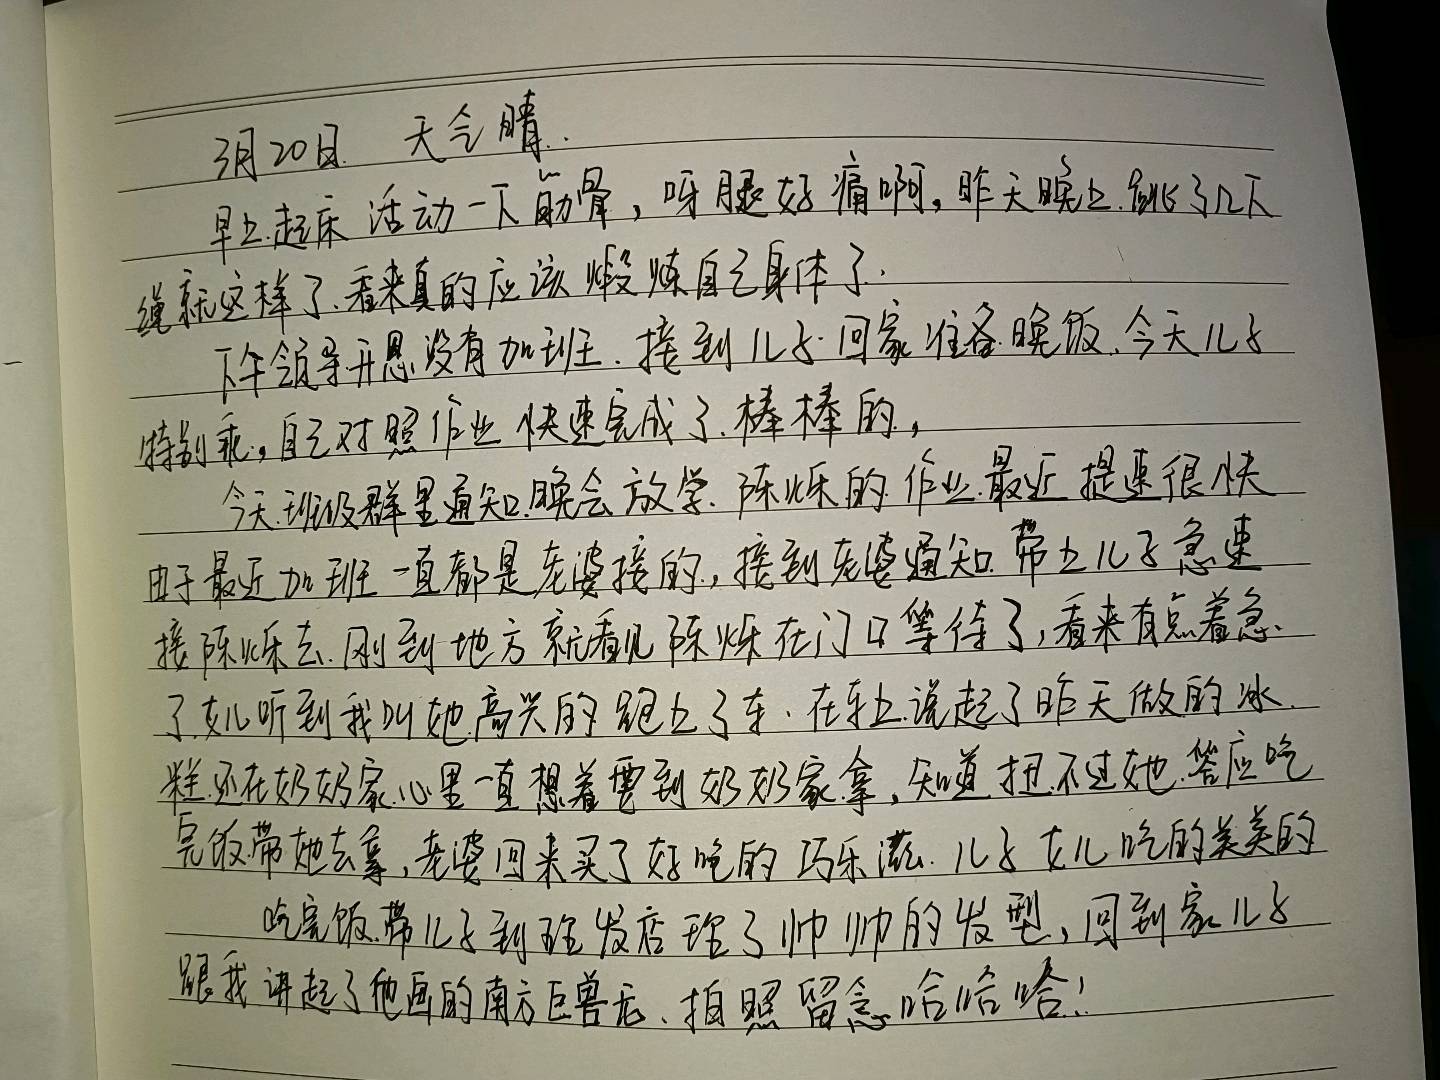 3月20日. 天气晴.
早上.起床 活动一下筋骨，呀腿好痛啊，昨天晚上.跳了几下
绳就这样了.看来真的应该煅炼自己身体了.
下午领导开恩没有加班.接到儿子.回家准备晚饭.今天儿子
特别乖.，自己对照作业快速完成了.棒棒的，
今天.班级群里通知.晚会放学.陈烁的作业.最近提速很快
由于最近加班一直都是老婆接的，接到老婆通知.带上儿子急速
接陈烁去.刚到地方就看见陈烁在门口等待了，看来有点着急.
了.女儿听到我叫她.高兴的跑上了车.在车上.说起了昨天做的冰.
糕.还在奶奶家.心里一直想着要到奶奶家拿，知道扭不过她.答应吃
完饭.带她去拿，老婆回来买了好吃的巧乐滋.儿子女儿吃的美美的
吃完饭.带儿子到理发店理了帅帅的发型，回到家儿子
跟我讲起了他画的南方巨兽龙.拍照留念哈哈哈！